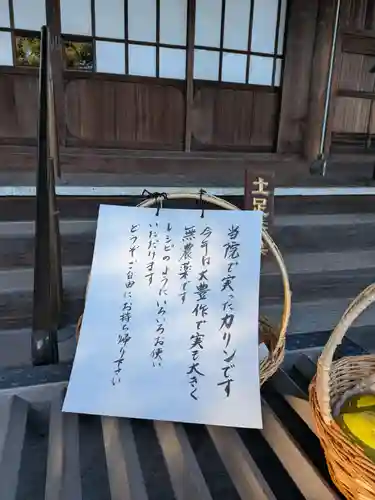 当院で実ったカリンです
今年は大豊作で実も大きく
無農薬です
レシピのようにいろいろお使い
いただけます
どうぞご自由にお持ち帰り下さい
土足